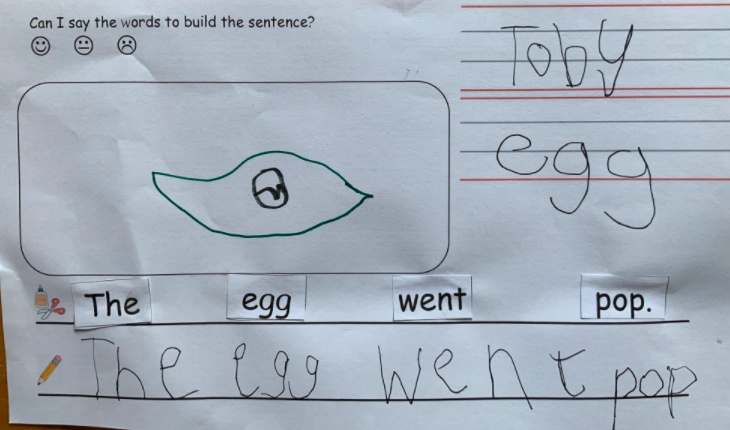 Can I say the words to build the sentence?
Toby
egg
The egg went pop.
The egg went pop